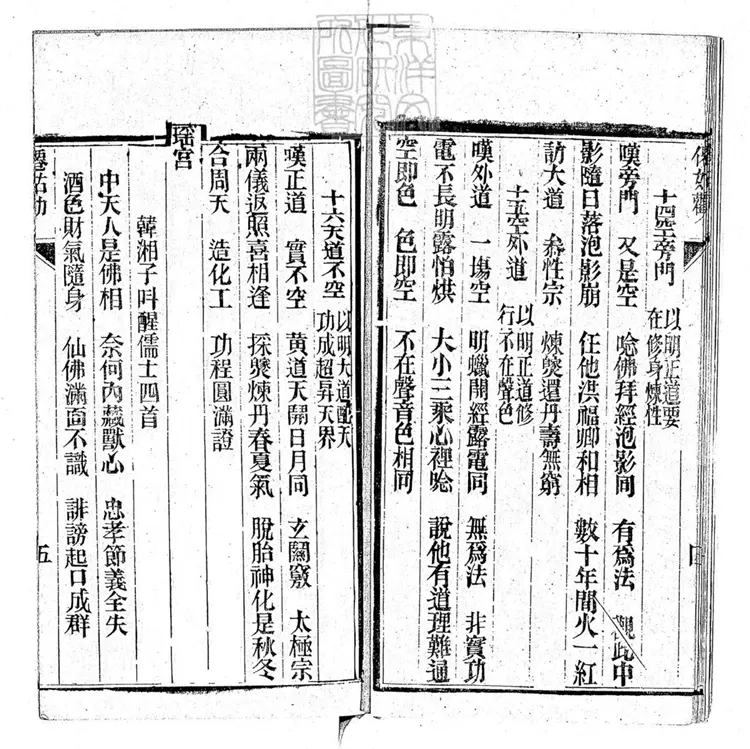 十四空旁門 以明正道要在修身煉性
嘆旁門 又是空 唸佛拜經泡影同 有爲法 觀此中
影隨日落泡影崩 任他洪福卿和相 數十年間火一紅
訪大道 叅性宗 煉獎還丹壽無窮
十五空外道 以明正道修行不在聲色
嘆外道 一塲空 明蠟開經露電同 無爲法 非實功
電不長明露怕烘 大小三乘心裡唸 說他有道理難通
空即色 色即空 不在聲音色相同
十六天道不空 以明大道配天功成超昇天界
嘆正道 實不空 黄道天開日月同 玄關竅 太極宗
兩儀返照喜相逢 採獎煉丹春夏氣 脫胎神化是秋冬
合周天 造化工 功程圓滿證
瑶宮
韓湘子呌醒儒士四首
中天人是佛相 奈何內藏獸心 忠孝節義全失
酒色財氣隨身 仙佛滿面不識 誹謗起口成群
五